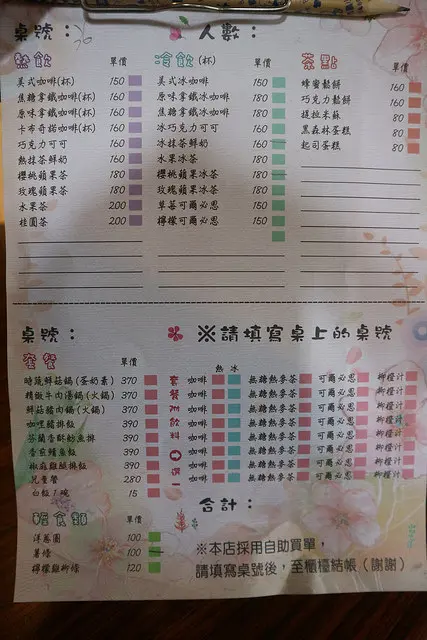 桌號： 人數：
熱飲 單價 冷飲(杯) 單價 茶點 單價
美式咖啡(杯) 150 美式冰咖啡 150 蜂蜜鬆餅 160
焦糖拿鐵咖啡(杯) 160 原味拿鐵冰咖啡 180 巧克力鬆餅 160
原味拿鐵咖啡(杯) 160 焦糖拿鐵冰咖啡 180 提拉米蘇 80
卡布奇諾咖啡(杯) 160 冰巧克力可可 160 黑森林蛋糕 80
巧克力可可 160 冰抹茶鮮奶 160 起司蛋糕 80
熱抹茶鮮奶 160 水果冰茶 180
櫻桃蘋果茶 180 櫻桃蘋果冰茶 180
玫瑰蘋果茶 180 玫瑰蘋果冰茶 180
水果茶 200 草莓可爾必思 150
桂圓茶 200 檸檬可爾必思 150
桌號： ※請填寫桌上的桌號
套餐 單價 熱 冰
時蔬鮮菇鍋(蛋奶素) 370 套 咖啡 無糖熱麥茶 可爾必思 柳橙汁
精緻牛肉湯鍋(火鍋) 370 餐 咖啡 無糖熱麥茶 可爾必思 柳橙汁
鮮菇豬肉鍋(火鍋) 370 附 咖啡 無糖熱麥茶 可爾必思 柳橙汁
咖哩豬排飯 390 飲 咖啡 無糖熱麥茶 可爾必思 柳橙汁
芬蘭香酥鮭魚排 390 料 咖啡 無糖熱麥茶 可爾必思 柳橙汁
香煎鱈魚飯 390 咖啡 無糖熱麥茶 可爾必思 柳橙汁
椒麻雞腿排飯 390 選 咖啡 無糖熱麥茶 可爾必思 柳橙汁
兒童餐 280 一 咖啡 無糖熱麥茶 可爾必思 柳橙汁
白飯1碗 15
輕食類 單價 合計：
洋蔥圈 100
薯條 100 ※本店採用自助買單，
檸檬雞柳條 120 請填寫桌號後，至櫃檯結帳（謝謝）